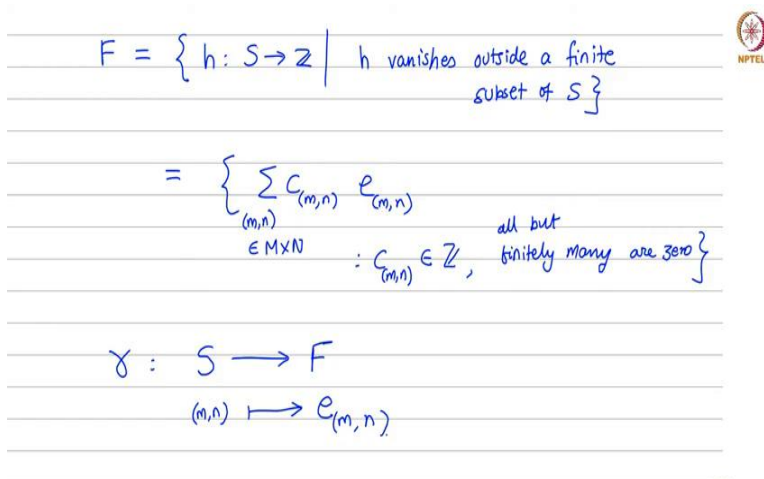 F = { h : S → Z | h vanishes outside a finite
subset of S }
= { ∑ C(m,n) e(m,n)
(m,n)
∈ M×N
: C(m,n) ∈ ℤ, all but finitely many are zero }
γ : S ⟶ F
(m,n) ⟼ e(m,n)
NPTEL